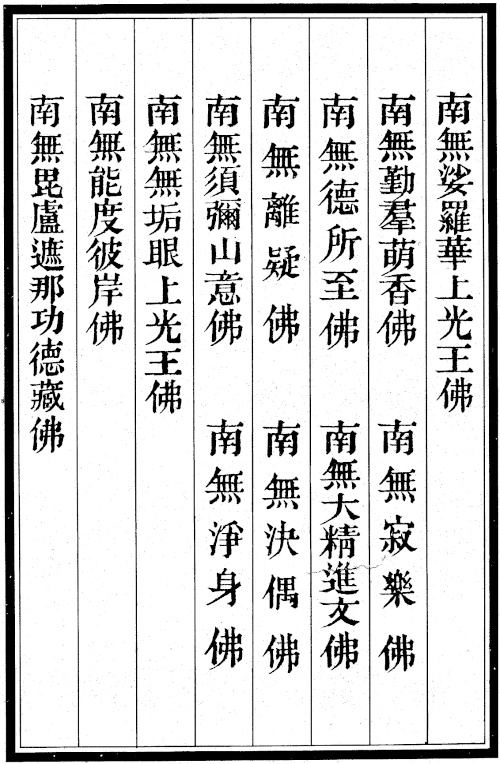 南無娑羅華上光王佛
南無勤羣萌香佛 南無寂樂佛
南無德所至佛 南無大精進文佛
南無離疑佛 南無決偶佛
南無須彌山意佛 南無淨身佛
南無無垢眼上光王佛
南無能度彼岸佛
南無毘盧遮那功德藏佛